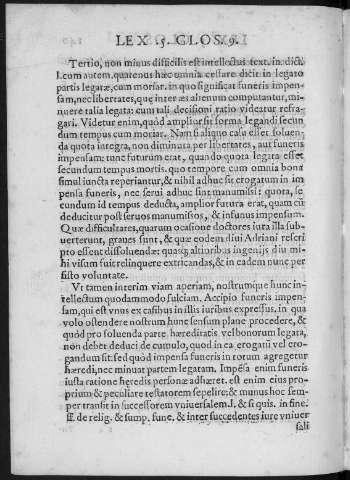 LEX .5. GLOS. 9.
Tertio, non minus difficilis est intellectus text. in. dict.
l. cum autem. quatenus hæc omnia cessare dicit in legato
partis legatæ, cum moriar. in quo significat funeris impen-
sam, nec libertates, quę inter æs alienum computantur, mi-
nuere talia legata: cum tali decisioni ratio videatur refra-
gari. Videtur enim, quòd amplior sit forma legandi secun
dum tempus cum moriar. Nam si aliquo casu esset soluen,
da quota integra, non diminuta per libertates, aut funeris
impensam: tunc futurum erat, quando quota legata esset
secundum tempus mortis. quo tempore cum omnia bona
simul iuncta reperiantur, & nihil adhuc sit erogatum in im
pensa funeris, nec serui adhuc sint manumissi: quota, se
cundum id tempus deducta, amplior futura erat, quàm cũ
deducitur post seruos manumissos, & in funus impensum.
Quæ difficultares, quarum ocasione doctores iura illa sub
uerterunt, graues sunt, & quæ eodem diui Adriani rescri
pro essent dissoluendæ: quasq; altioribus ingenijs diu mi-
hi visum fuit relinquere extricandas, & in eadem nunc per
sisto voluntate.
Vt tamen interim viam aperiam, nostrumque hunc in-
tellectum quodammodo fulciam. Accipio funeris impen-
sam, qui est vnus ex casibus in illis iuribus expressus. in qua
volo ostendere nostrum hunc sensum plane procedere, &
quòd pro soluenda parte hæreditatis vel bonorum legata,
non debet deduci de cumulo, quod in ea erogatũ vel ero-
gandum sit: sed quòd impensa funeris in rorum agregetur
hæredi, nec minuat partem legatam. Impẽsa enim funeris
iusta ratione hæredis personæ adhæret. est enim eius pro-
prium & peculiare testatorem sepelire: & munus hoc sem-
per transit in successorem vniuersalem. l. & si quis. in fine.
ff. de relig. & sump. fune. & inter succedentes iure vniuer
sali